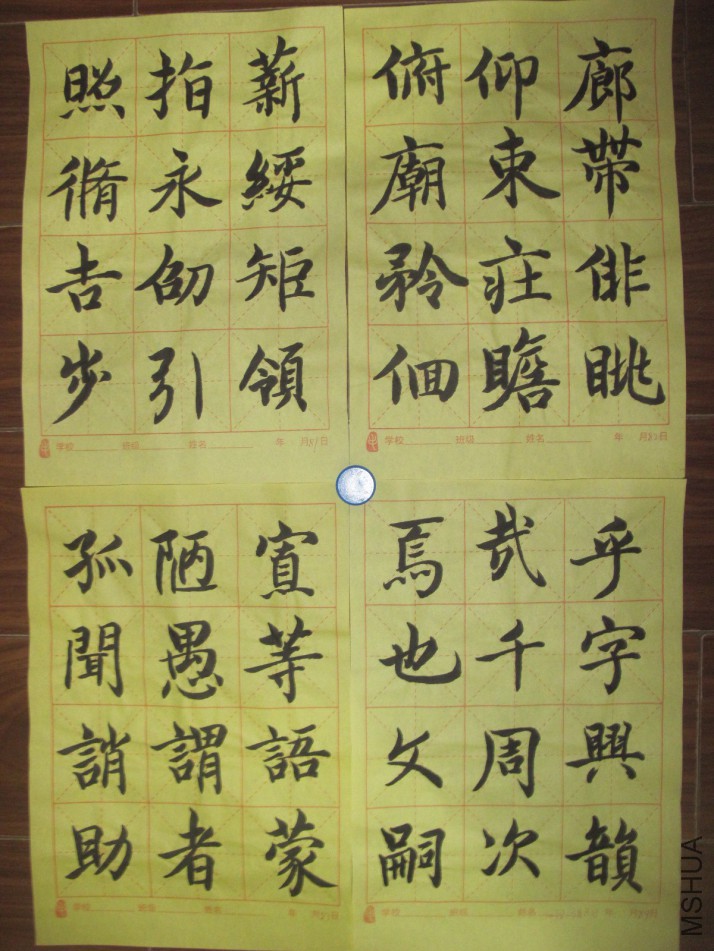 照指薪
脩永綏
吉劭矩
步引領
学校 班级 姓名 年 月81日
俯仰廊
廟束帶
矜莊俳
佪瞻眺
学校 班级 姓名 年 月82日
孤陋寡
聞愚等
誚謂語
助者蒙
学校 班级 姓名 年 月 日
焉哉乎
也千字
文周興
嗣次韻
学校 班级 姓名 年 月 日
MSHUA